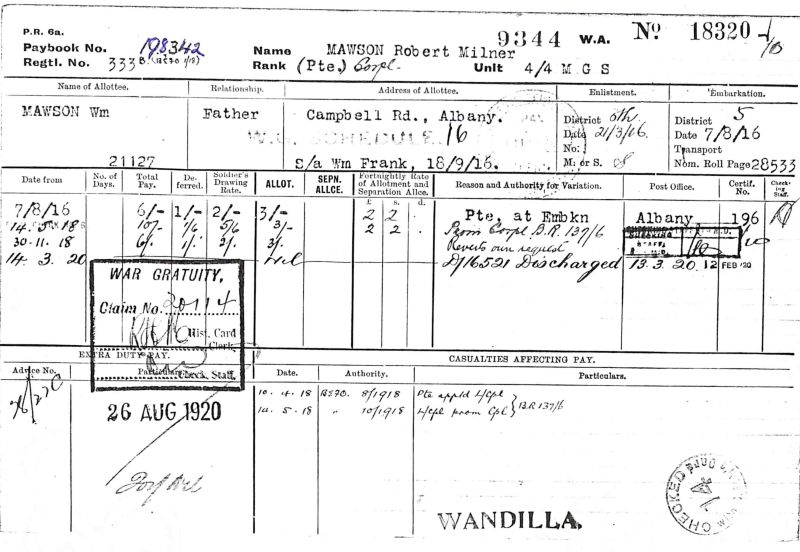 P.R. 6a.
Paybook No. 198342
Regtl. No. 333B. (BS70 1/18)
Name MAWSON Robert Milner
Rank (Pte.) Corpl. Unit 4/4 M G S
9344 W.A. No 18320
Name of Allottee. Relationship. Address of Allottee. Enlistment. Embarkation.
MAWSON Wm Father Campbell Rd., Albany. 16
District 5th District 5
Date 21/3/16 Date 7/8/16
No. Transport
M. or S. S Nom. Roll Page 28533
21127 s/a Wm Frank, 18/9/16.
Date from No. of Days. Total Pay. Deferred. Soldier's Drawing Rate. ALLOT. SEPN. ALLCE. Fortnightly Rate of Allotment and Separation Allce. Reason and Authority for Variation. Post Office. Certif. No. Checking Staff.
£ s. d.
7/8/16 6/- 1/- 2/- 3/- 2 2 . Pte, at Embkn Albany 196
14. 5. 18 10/- 1/6 5/6 3/- 2 2 . Prom Corpl B.R. 137/6
30. 11. 18 6/- 1/- 2/- 3/- Reverts own request
14. 3. 20 Nil D/16521 Discharged 13. 3. 20. 12 FEB '20
CHECKING STAFF
WAR GRATUITY.
Claim No. 20114
Hist. Card Clerk
Check. Staff.
EXTRA DUTY PAY. CASUALTIES AFFECTING PAY.
Advice No. Particulars. Date. Authority. Particulars.
26 AUG 1920
10. 4. 18 BS70. 8/1918 Pte apptd L/Cpl
14. 5. 18 " 10/1918 L/Cpl prom Cpl } B.R 137/6
CHECKED
WANDILLA.